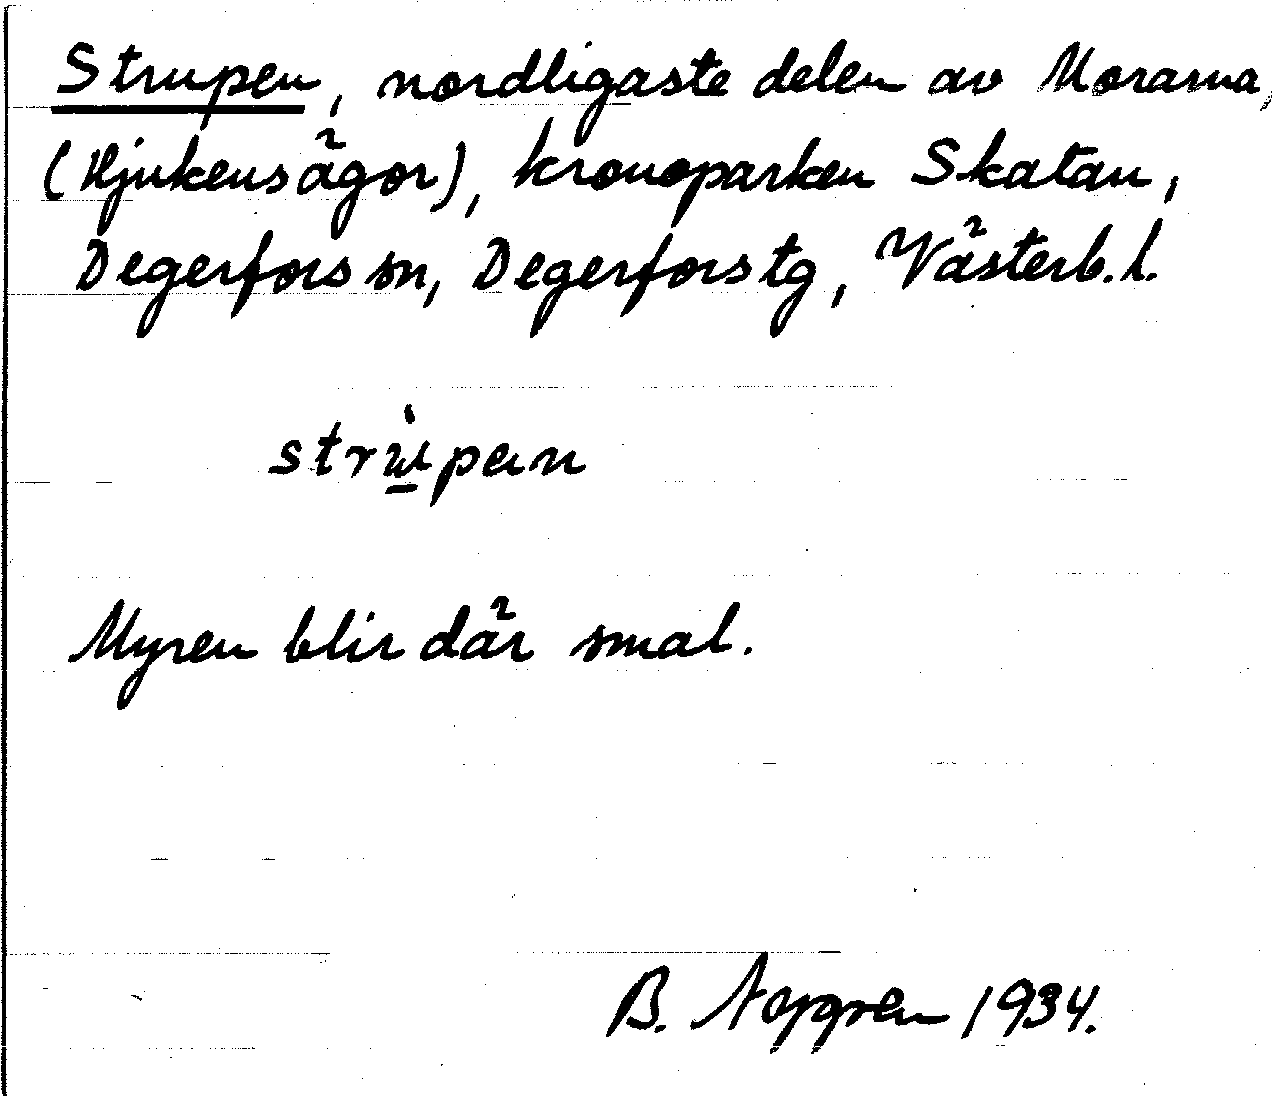 Strupen, nordligaste delen av Morarna,
(Hjukens ägor), kronoparken Skatan,
Degerfors sn, Degerfors tg, Västerb. l.
strùpen
Myren blir där smal.
B. 1934.